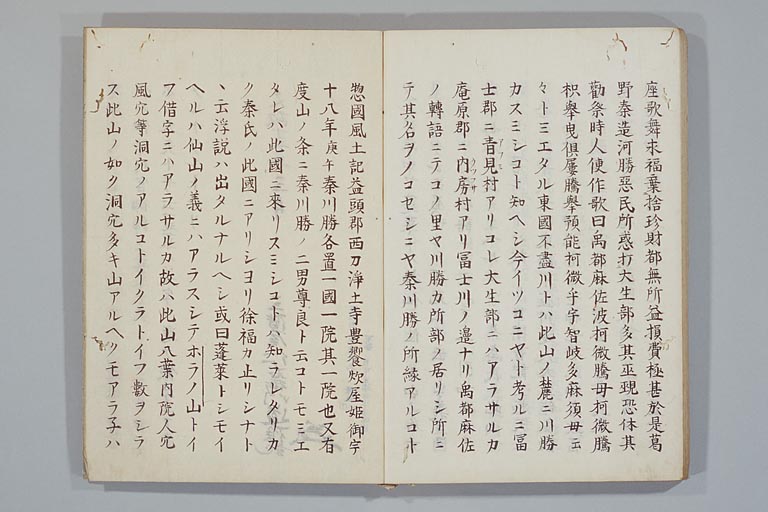 座歌舞求福棄捨珍財都無所益損費極甚於是葛
野秦造河勝惡民所惑打大生部多其巫覡恐休其
勸祭時人便作歌曰禹都麻佐波柯微騰毋柯微騰
枳擧曳倶屢騰擧預能柯微乎宇智岐多麻須毋云
々トミエタル東國不盡川トハ此山ノ麓ニ川勝
カスミシコト知ヘシ今イツコニヤト考ルニ冨
士郡ニ青見村アリコレ大生部ニハアラサルカ
庵原郡ニ内房村アリ冨士川ノ邉ナリ禹都麻佐
ノ轉語ニテコノ里ヤ川勝カ所部ノ居リシ所ニ
テ其名ヲノコセシニヤ秦川勝ノ所縁アルコト
惣國風土記益頭郡西刀淨土寺豊饗炊屋姫御宇
十八年庚午秦川勝各置一國一院其一院也又有
度山ノ条ニ秦川勝ノ二男尊良ト云コトモミエ
タレハ此國ニ來リスミシコトハ知ラレタリカ
ク秦氏ノ此國ニアリシヨリ徐福カ止リシナト
ヽ云浮説ハ出タルナルヘシ或曰蓬莱トシモイ
ヘルハ仙山ノ義ニハアラスシテホラノ山トイ
フ借字ニハアラサルカ故ハ此山八葉内院人穴
風穴等洞穴ノアルコトイクラトイフ數ヲシラ
ス此山ノ如ク洞穴多キ山アルヘクモアラ子ハ